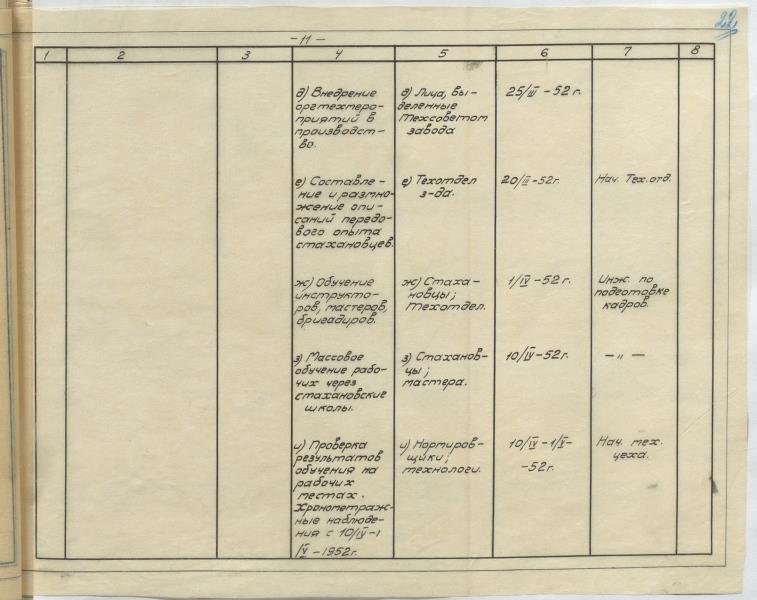 22
-11-
1 2 3 4 5 6 7 8
д) Внедрение
оргтехмеро-
приятий в
производст-
во.
д) Лица, вы-
деленные
Техсоветом
завода
25/III - 52 г.
е) Составле-
ние и размно-
жение опи-
саний передо-
вого опыта
стахановцев.
е) Техотдел
з-да.
20/III-52г.
Нач. Тех.отд.
ж) Обучение
инструкто-
ров, мастеров,
бригадиров.
ж) Стаха-
новцы;
Техотдел.
1/IV - 52г.
Инж. по
подготовке
кадров.
з) Массовое
обучение рабо-
чих через
стахановские
школы.
з) Стаханов-
цы;
мастера.
10/IV-52г.
- " -
и) Проверка
результатов
обучения на
рабочих
местах.
Хронометраж-
ные наблюде-
ния с 10/IV-1
/V - 1952г.
и) Нормиров-
щики;
технологи.
10/IV-1/V-
-52г.
Нач. мех.
цеха.